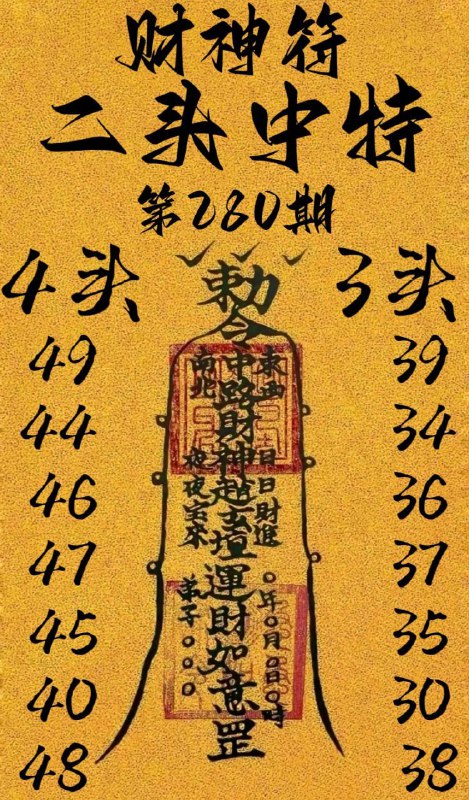 财神符
二头中特
第280期
4头
49
44
46
47
45
40
48
3头
39
34
36
37
35
30
38
勅令
中路財神趙玄壇運財如意罡
東西
南北
日日財進
夜夜宝来
〇年〇月〇日〇時
弟子〇〇〇